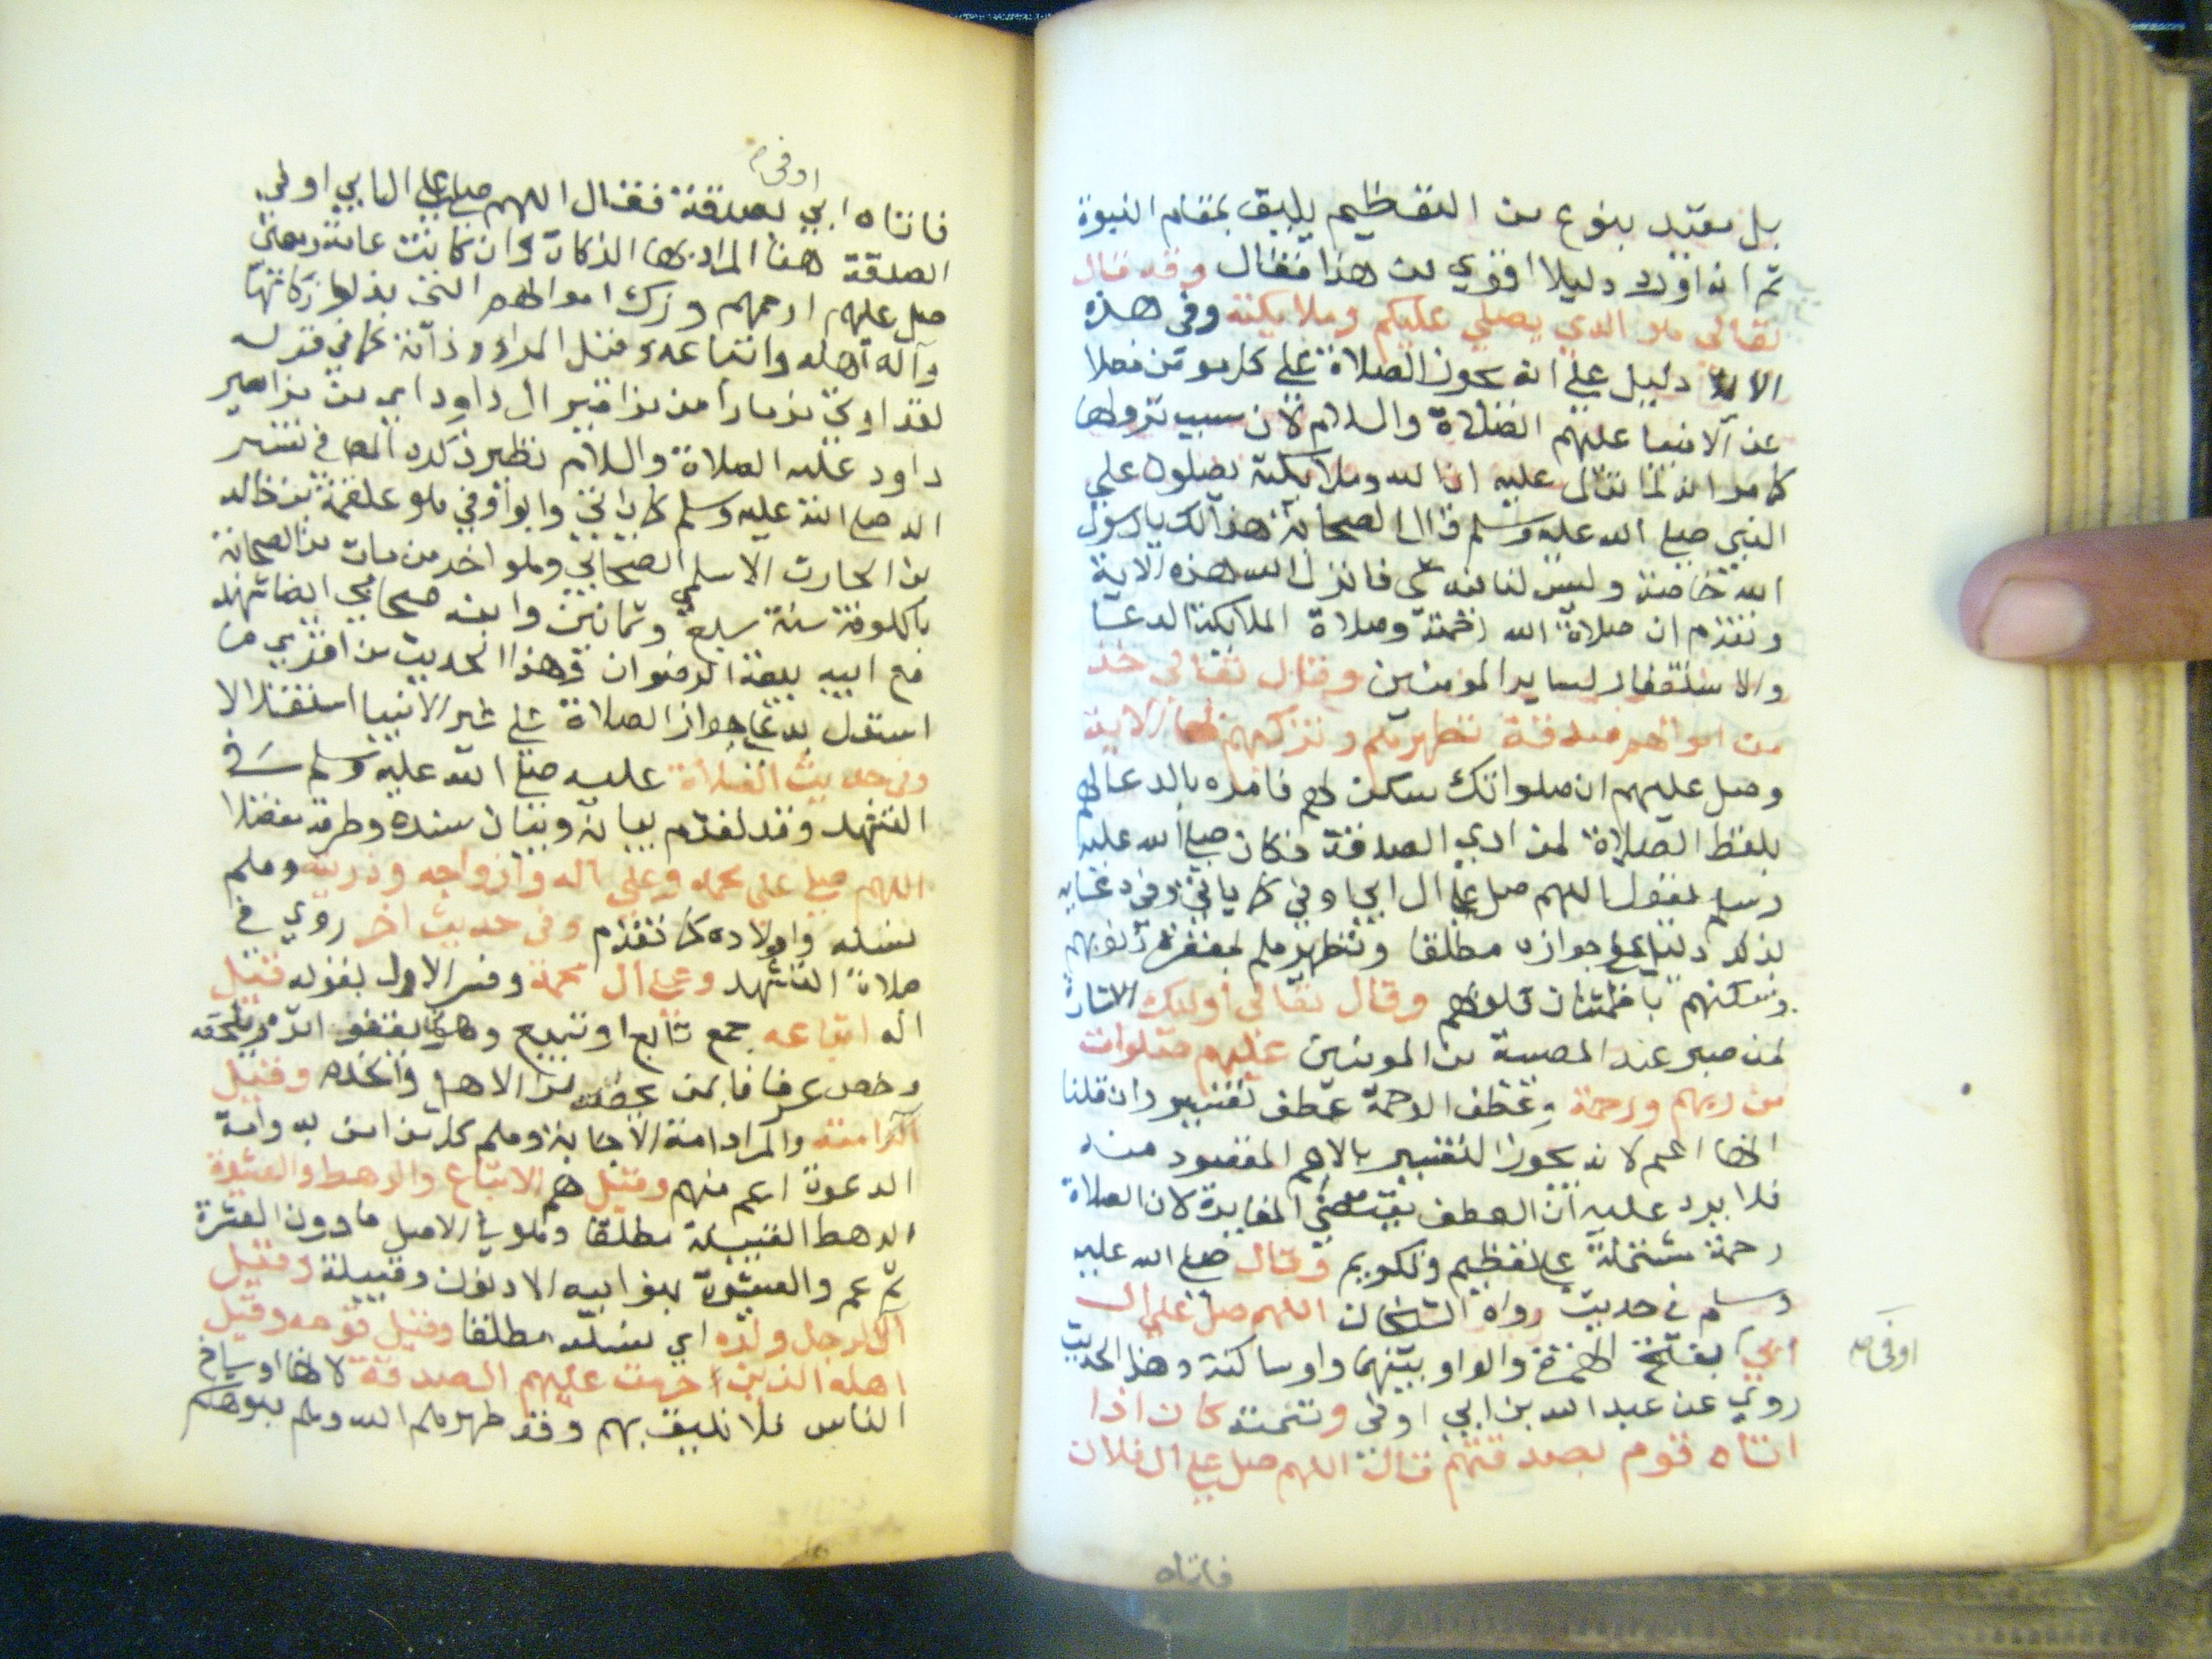 بل مقيد بنوع من التعظيم يليق بمقام النبوة
ثم انه اورد دليلا اقوي من هذا فقال وقد قال
تعالى هو الذي يصلي عليكم وملايكته وفي هذه
الاية دليل علي انه يجوز الصلاة علي كل مومن فضلا
عن الانبيا عليهم الصلاة والسلام لان سبب نزولها
كما مر انه لما نزل عليه ان الله وملايكته يصلون علي
النبي صلي الله عليه وسلم قال الصحابة هذا لك يارسول
الله خاصة وليس لنا فيه شي فانزل الله هذه الاية
وتقدم ان صلاة الله رحمة وصلاة الملايكة الدعا
والاستغفار لساير المومنين وقال تعالى خذ
من اموالهم صدقة تطهرهم وتزكيهم بها الاية
وصل عليهم ان صلواتك سكن لهم فامره بالدعا لهم
بلفظ الصلاة لمن ادي الصدقة فكان صلي الله عليه
وسلم يقول اللهم صل علي ال ابي اوفي كما ياتي وفي دعايه
بذلك دليل علي جوازه مطلقا وتطهيرهم بمغفرة ذنوبهم
وتسكنهم باطمئنان قلوبهم وقال تعالى أوليك الاشارة
لمن صبر عند المصيبة من المومنين عليهم صلوات
من ربهم ورحمة وعطف الرحمة عطف تفسير وان قلنا
انها اعم لانه يجوز التفسير بالاعم المقصود منه
فلا يرد عليه ان العطف يقتضي المغايرة لان الصلاة
رحمة مشتملة علي تعظيم وتكريم وقال صلي الله عليه
وسلم في حديث رواه الشيخان اللهم صل علي ال
ابي بفتح الهمزة والواو بينهما واو ساكنة وهذا الحديث
اوفى صح
روي عن عبد الله بن ابي اوفى وتتمته كان اذا
اتاه قوم بصدقتهم قال اللهم صل علي ال فلان
فاتاه
اوفى
فاتاه ابي بصدقة فقال اللهم صل علي ال ابي اوفي
الصدقة هنا المراد بها الزكاة وان كانت عامة ومعني
صل عليهم ارحمهم وزك اموالهم التي بذلوا زكاتها
وآله أهله واتباعه وقيل المراد ذاته كما في قوله
لقد اوتي مزمارا من مزامير ال داود اي من مزامير
داود عليه الصلاة والسلام نظير ذكره المص في تفسير
اله صلي الله عليه وسلم كما ياتي وابو اوفي هو علقمة بن خالد
بن الحارث الاسلمي الصحابي وهو اخر من مات من الصحابة
بالكوفة سنة سبع وثمانين وابنه صحابي ايضا شهد
مع ابيه بيعة الرضوان وهذا الحديث من اقوي ما
استدل به علي جواز الصلاة علي غير الانبيا استقلالا
وفي حديث الصلاة عليه صلي الله عليه وسلم في
التشهد وقد تقدم بيانه وبيان سنده وطرقه مفصلا
اللهم صل على محمد وعلى اله وازواجه وذريته وهم
نسله واولاده كما تقدم وفي حديث اخر روي في
صلاة التشهد وعلى ال محمد وفسر الاول بقوله قيل
اله اتباعه جمع تابع او تبيع وهو من يقفو اثره ويلحقه
وخص عرفا بمن يخصه من الاهل واتخذه وقيل
آله امته والمراد امة الاجابة وهم كل من امن به وامة
الدعوة اعم منهم وقيل هم الاتباع والرهط والعشيرة
الرهط القبيلة مطلقا وهو في الاصل ما دون العشرة
ثم عم والعشيرة بنو ابيه الادنون وقبيلة وقيل
ال الرجل ولده اي نسله مطلقا وقيل قومه وقيل
اهله الذين حرمت عليهم الصدقة لانها اوساخ
الناس فلا تليق بهم وقد طهرهم الله وهم بنو هاشم